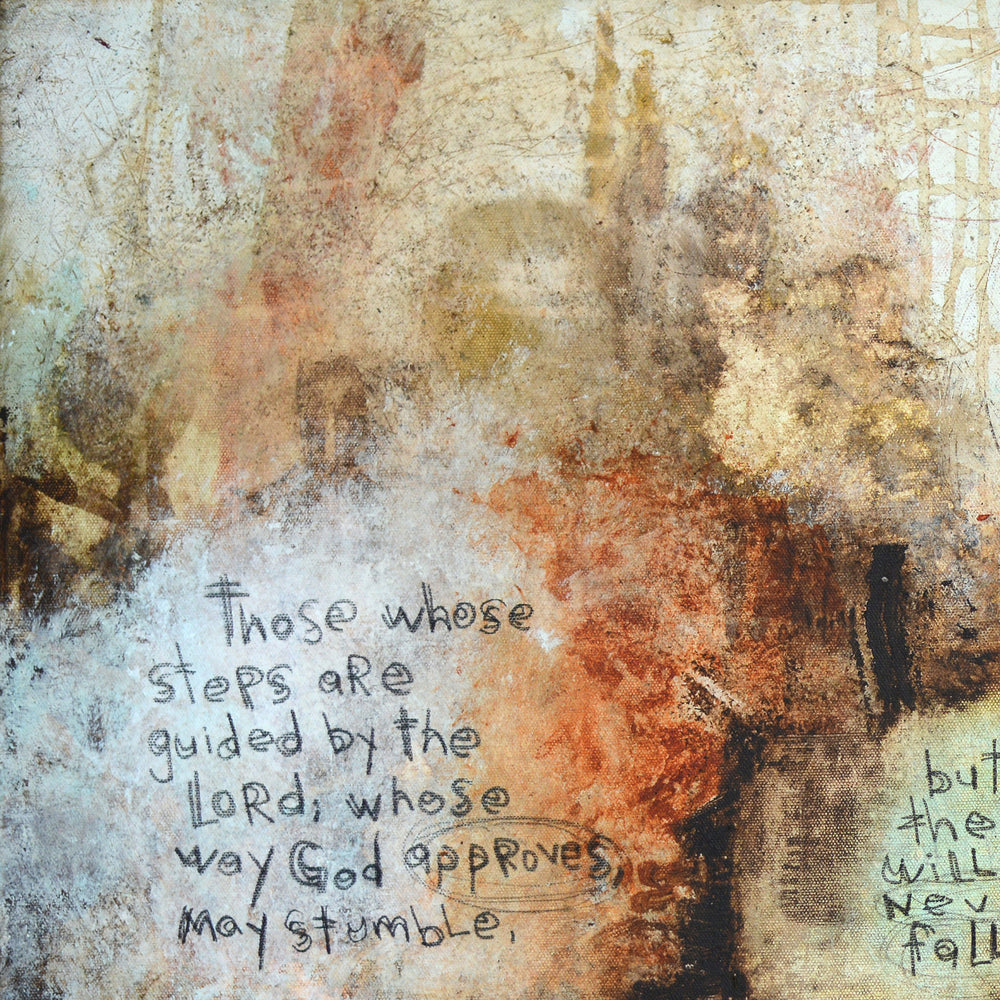 Those whose
steps are
guided by the
LORD; whose
way God approves,
may stumble,
but
the
will
Nev
fall